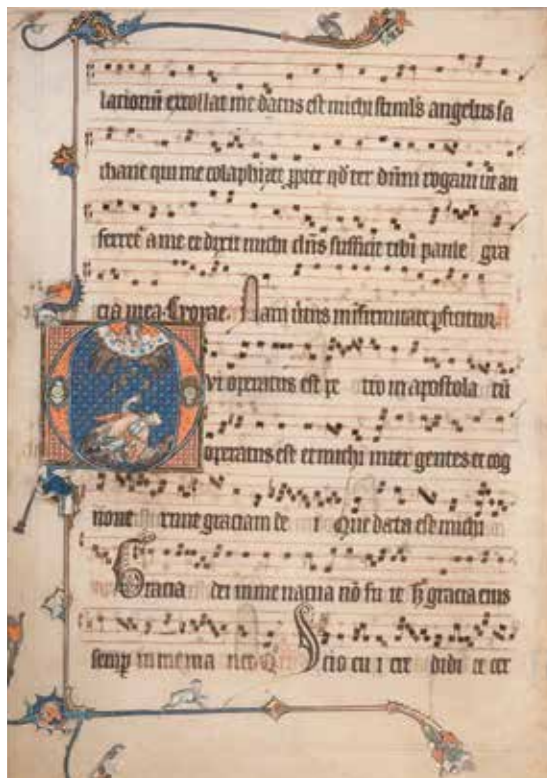 lacionũ extollat me datus est michi stimul's angelus sa
thane qui me colaphizet ꝓpter qđ ter dñm rogaui ut au
ferret̃ a me et dixit michi dñs sufficit tibi paule gra
cia mea. Nam uirtus in infirmitate ꝑficitur.
Qui operatus est pe tro in apostola tũ
operatus est et michi inter gentes et cog
noue runt graciam de i Que data est michi
Gracia dei in me uacua nõ fu it s; gracia eius
semꝑ in me ma net Scio cu i cre didi et cer